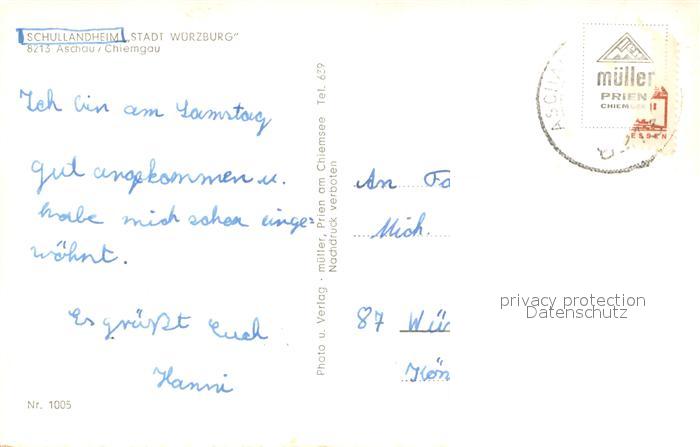 SCHULLANDHEIM „STADT WÜRZBURG"
8213 Aschau / Chiemgau
Ich bin am Samstag
gut angekommen u.
habe mich schon einge=
wöhnt.
Es grüßt Euch
Hanni
Nr. 1005
Photo u. Verlag · müller, Prien am Chiemsee Tel. 639
Nachdruck verboten
müller
PRIEN
CHIEMSEE
ESSEN
ASCHA
An Fa
Mich.
87 Wür
Kön
privacy protection
Datenschutz